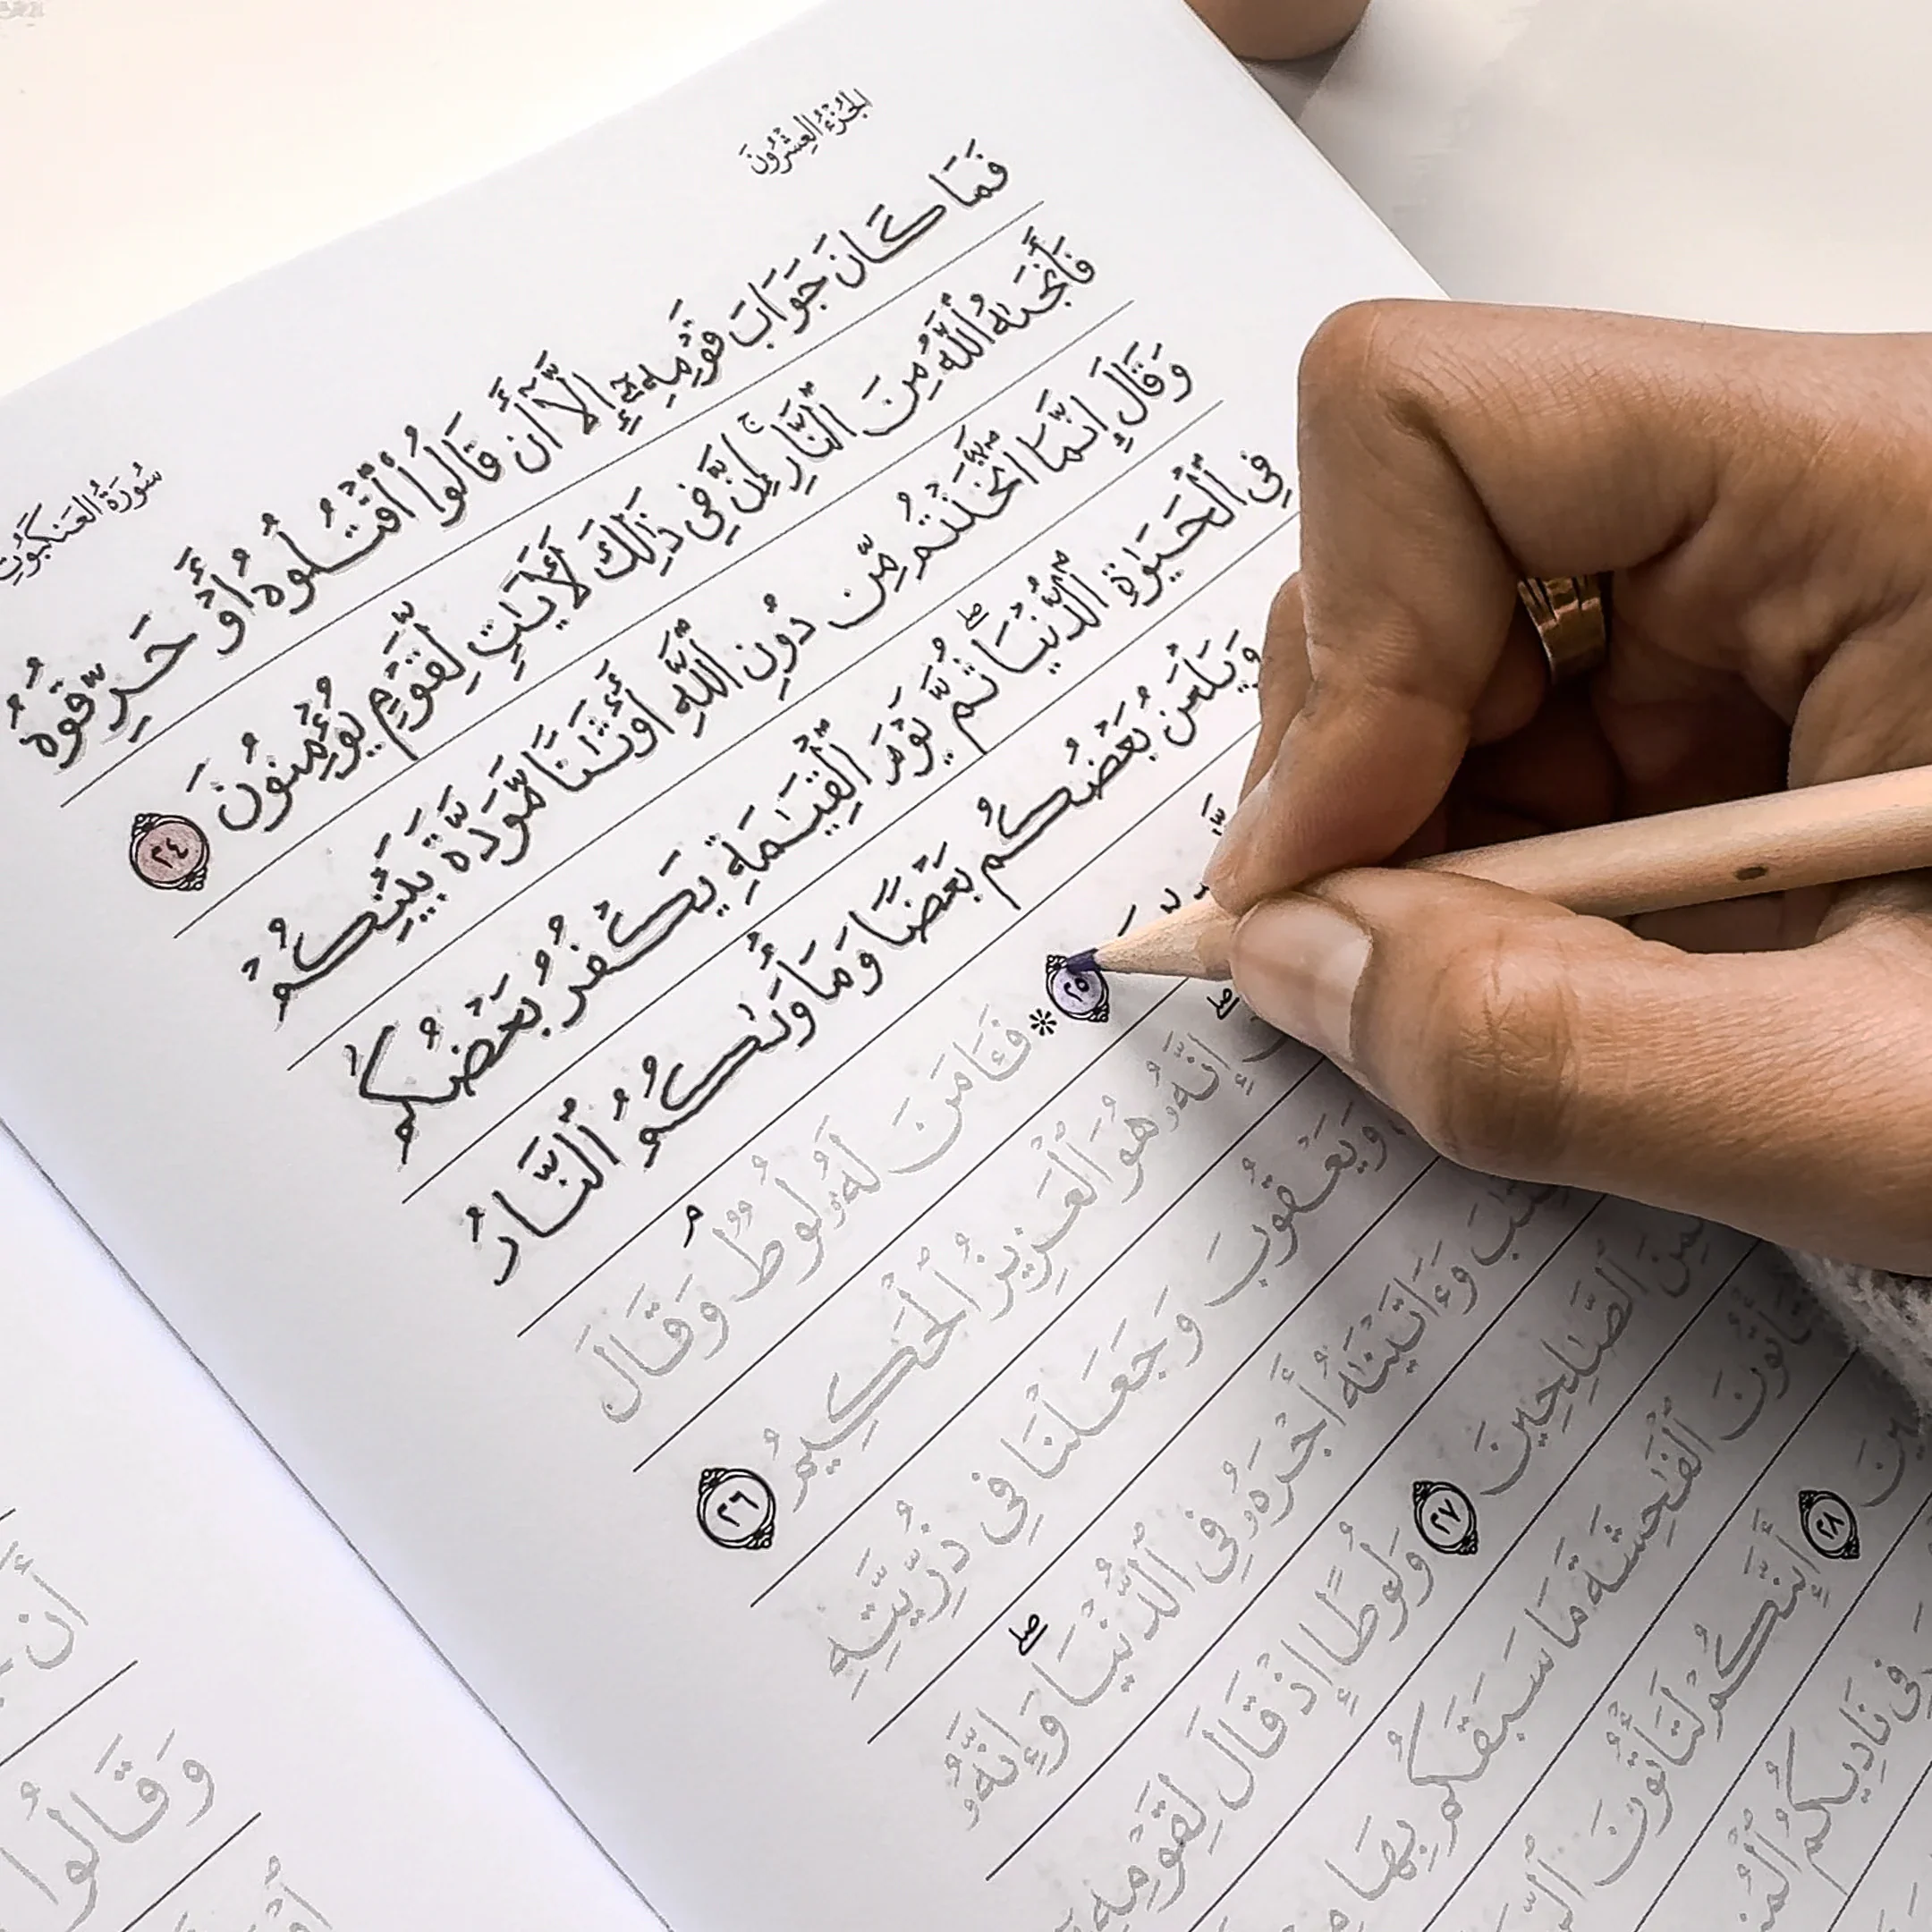 الجُزْءُ العِشْرُونَ
سُورَةُ العَنكَبُوتِ
فَمَا كَانَ جَوَابَ قَوْمِهِۦٓ إِلَّآ أَن قَالُوا۟ ٱقْتُلُوهُ أَوْ حَرِّقُوهُ
فَأَنجَىٰهُ ٱللَّهُ مِنَ ٱلنَّارِ ۚ إِنَّ فِى ذَٰلِكَ لَـَٔايَٰتٍ لِّقَوْمٍ يُؤْمِنُونَ ٢٤
وَقَالَ إِنَّمَا ٱتَّخَذْتُم مِّن دُونِ ٱللَّهِ أَوْثَٰنًا مَّوَدَّةَ بَيْنِكُمْ
فِى ٱلْحَيَوٰةِ ٱلدُّنْيَا ۖ ثُمَّ يَوْمَ ٱلْقِيَٰمَةِ يَكْفُرُ بَعْضُكُم
وَيَلْعَنُ بَعْضُكُم بَعْضًا وَمَأْوَىٰكُمُ ٱلنَّارُ
٢٥ * فَـَٔامَنَ لَهُۥ لُوطٌ وَقَالَ
إِنَّهُۥ هُوَ ٱلْعَزِيزُ ٱلْحَكِيمُ ٢٦
وَيَعْقُوبَ وَجَعَلْنَا فِى ذُرِّيَّتِهِ
وَءَاتَيْنَٰهُ أَجْرَهُۥ فِى ٱلدُّنْيَا ۖ وَإِنَّهُۥ
ٱلصَّٰلِحِينَ ٢٧ وَلُوطًا إِذْ قَالَ لِقَوْمِهِۦٓ
ٱلْفَٰحِشَةَ مَا سَبَقَكُم بِهَا
٢٨ أَئِنَّكُمْ لَتَأْتُونَ
فِى نَادِيكُمُ
أَن
وَقَالُوا۟